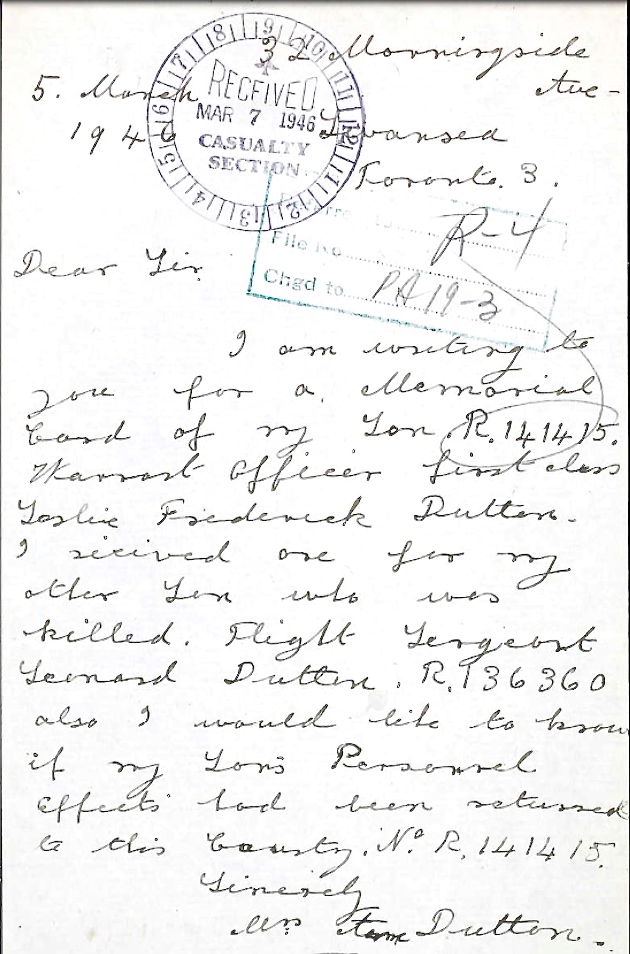 32 Morningside
5. March Ave-
1946 Swansea
Toronto. 3.
RECEIVED
MAR 7 1946
CASUALTY
SECTION
7 8 9 10 11 12 1 2 3 4 5 6
R-4
File No
Chgd to PA 19-3
Dear Sir
I am writing to
you for a Memorial
Card of my Son. R.141415.
Warrant Officer first class
Leslie Frederick Dutton.
I recived one for my
other Son who was
killed. Flight Sergeant
Leonard Dutton. R.136360
also I would like to know
if my Son's Personnel
effects had been returned
to this Country. No R.141415.
Sincerely
Mrs Dutton.